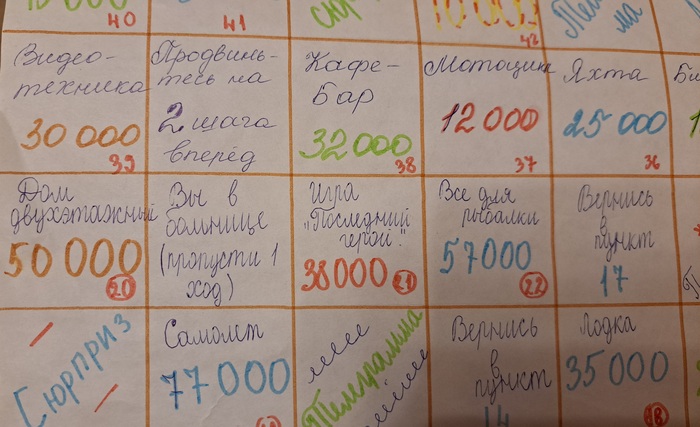 40
41
42
Видео-
техника
30 000
39
Продвинь-
тесь на
2 шага
вперёд
Кафе-
Бар
32000
38
Мотоцикл
12 000
37
Яхта
25 000
36
Дом
двухэтажный
50 000
20
Вы в
больнице
(пропусти 1
ход)
Игра
"Последний
герой".
38000
21
Все для
рыбалки
57000
22
Вернись
в
пункт
17
Сюрприз
Самолет
77 000
Телеграмма
Вернись
в
пункт
14
Лодка
35 000
18